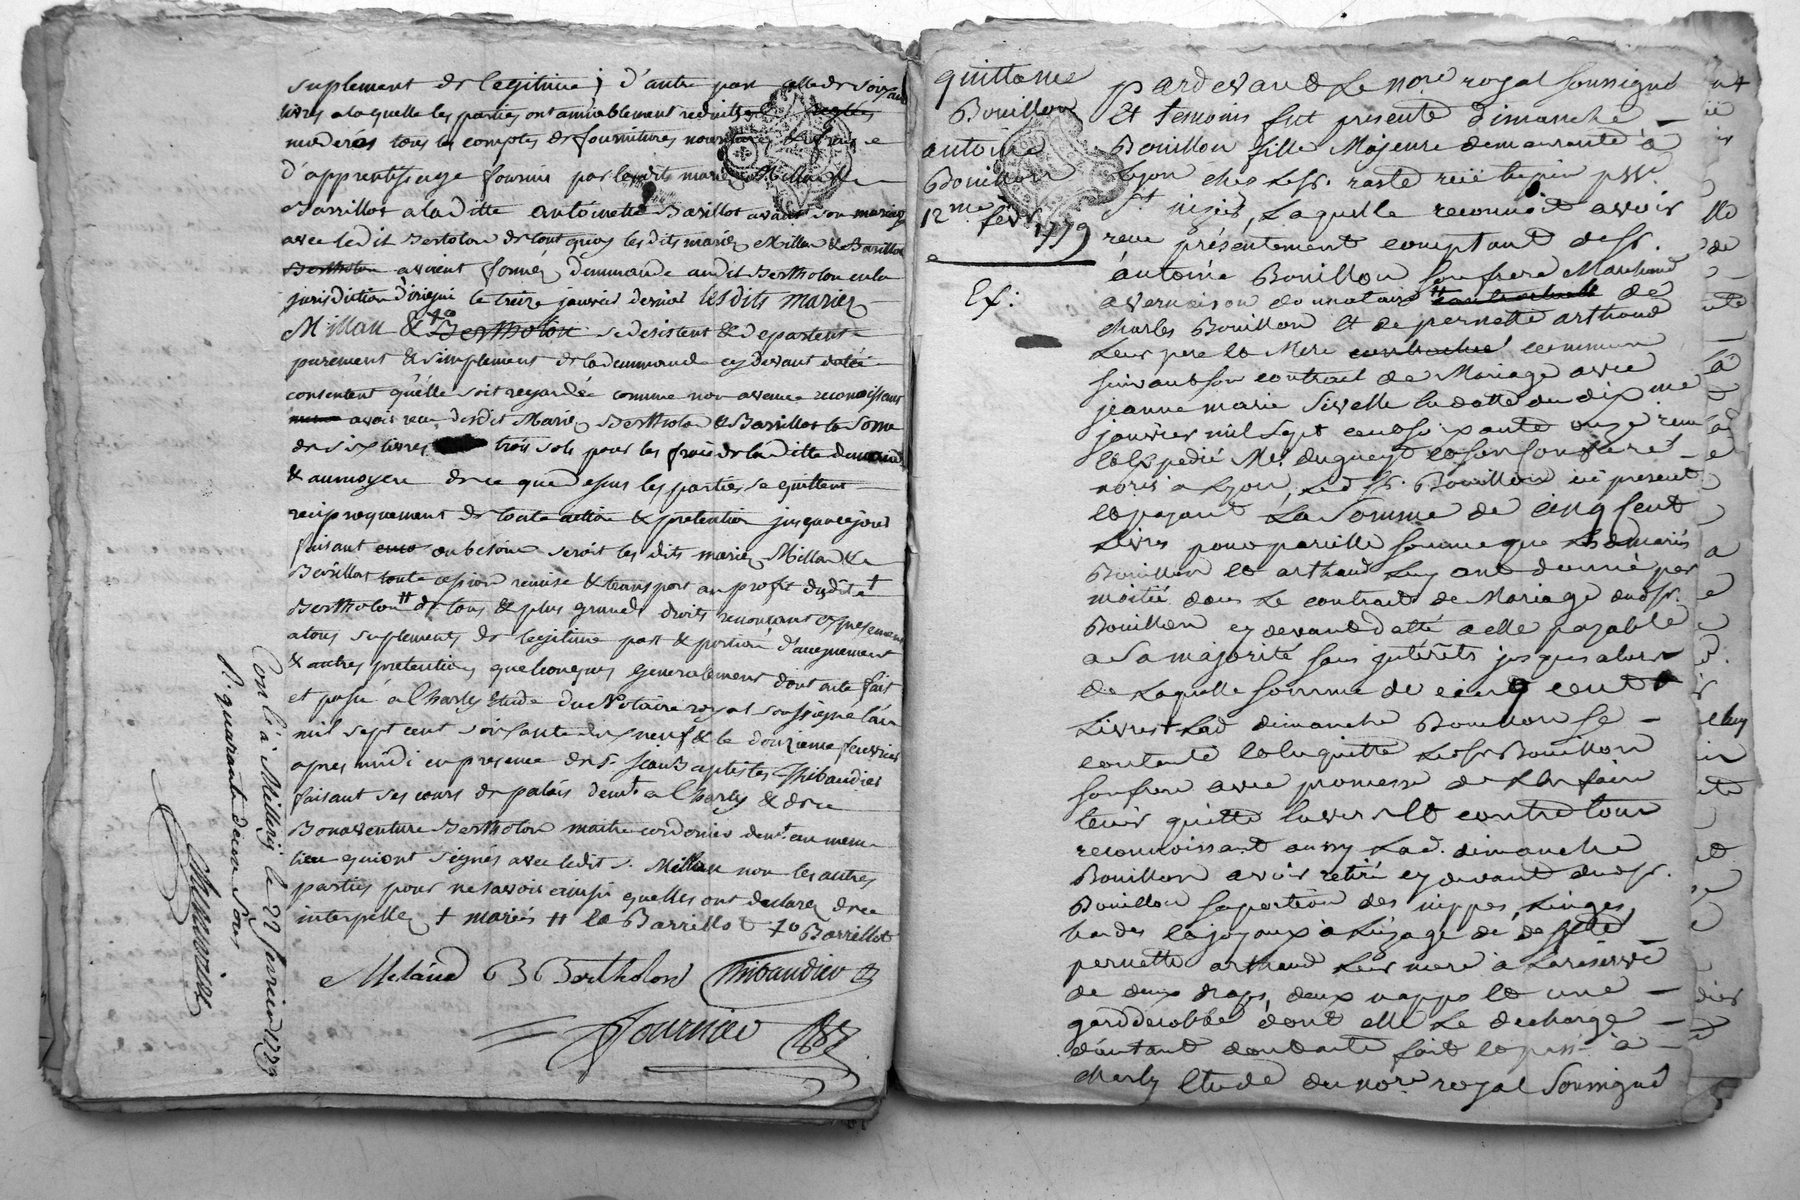 suplement de legitime ; d'autre part celle de soixante
livres a laquelle les parties ont amiablement reduittes et
moderés tous les comptes de fournitures nouritures & frais
d'apprentissage fournis par lesdits mariez Millan &
Barrillot a laditte antoinette Barillot avant son mariage
avec ledit Bertolon de tout quoy les dits mariez Millan & Barillot
Bertholon avoient formés demmande audit Bertholon en la
jurisdiction d'irigni le treize janvier dernier lesdits mariez
Millan & Bertholon se desistent & departent
purement & simplement de la demmande cy devant datée
consentent qu'elle soit regardée comme non avenue reconoissant
avoir reçu desdit Mariez Bertholon & Barrillot la some
de six livres trois sols pour les frais de la ditte demande
& aumoyen de ce que dessus les parties se quittent
reciproquement de toute action & pretention jusqu'a ce jour
faisant ou besoin seroit les dits mariez Millan &
Barillot toute cession remise & transport au profit dudit +
Bertholon # de tous & plus grands droits renoncant expressement
a tous suplements de legitime part & portion d'augment
& autres pretentions quelconques generalement dont acte fait
et passé a Charly Etude du Notaire royal soussigné l'an
mil sept cent soixante dix neuf & le douzieme fevrier
apres midi en presence de Sr. Jean Baptiste Thibaudier
faisant ses cours de palais demt. a Charly & de
Bonaventure Bertholon maitre cordonier demt. au meme
lieu qui ont signés avec ledit Sr. Millan non les autres
parties pour ne savoir ainsi quelles ont declarez de ce
interpellez + mariés # & Barrillot Barrillot
Milland B Bertholon Thibaudier
Fournier
Con.lé à Millery le 22 fevrier 1779
R. quarante deux sous
quittance
Bouillon
antoine
Bouillon
12me fevr 1779
Ex:
Pardevant le nore royal soussigné
Et temoins fut presente dimanche
Bouillon fille Majeure demeurante à
Lyon chés le Sr. raste rüe
St. nizier, Laquelle reconnoit avoir
recu présentement comptant de Sr.
antoine Bouillon son frere Marchand
a vernaison donnataire # de
Charles Bouillon Et de pernette arthaud
Leur pere et Mere commun
suivant son contrat de Mariage avec
jeanne marie Sivelle en datte du dix me
janvier mil sept cent soixante onze reçu
et Expedié Me. dugueyt et son confrere
nores a Lyon, Led Sr. Bouillon ici present
et payant La Somme de cinq cent
Livres pour pareille somme que Les d mariés
Bouillon et arthaud Luy ont donné par
moitié dans Le contrat de Mariage dudSr.
Bouillon cy devant datté a elle payable
a sa majorité sans interêts jusques alors
de Laquelle somme de cinq cent
Livres Lad dimanche Bouillon se
contente et en quitte LedSr Bouillon
son frere avec promesse de L'en faire
tenir quitte envers et contre tous
reconnoissant aussy Lad. dimanche
Bouillon avoir retiré cy devant dudSr.
Bouillon sa portion des nippes, Linges,
hardes et joyaux à L'usage de
pernette arthaud Leur mere à La reserve
de deux draps, deux nappes et une
garderobbe dont elle Le decharge
d'autant dont acte fait et passé a
Charly Etude du nore royal Soussigné